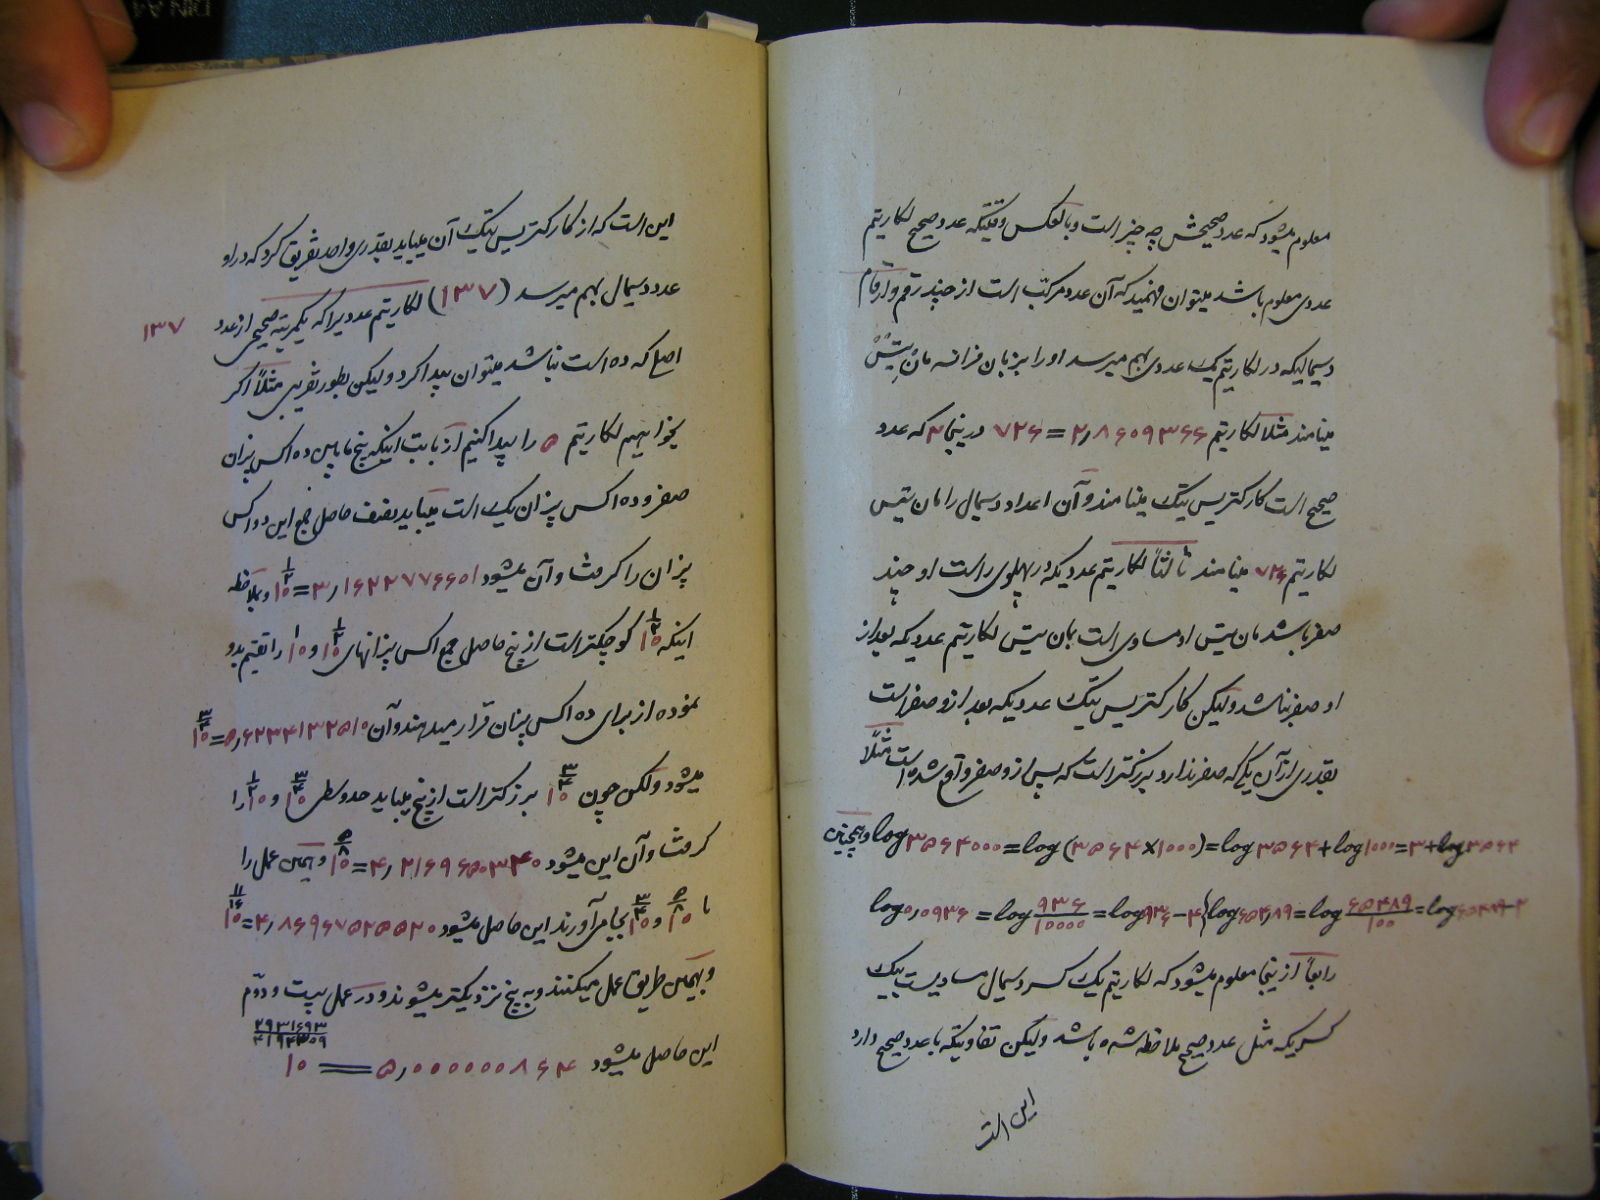 معلوم میشود که عدد صحیحش چه چیز است و بالعکس وقتیکه عدد صحیح لکاریتم
عددی معلوم باشد میتوان فهمید که آن عدد مرکب است از چند رقم و ارقام
دسیمالیکه در لکاریتم یک عددی بهم میرسد او را بزبان فرانسه مان تیس
مینامند مثلا لکاریتم ۷۲۶=۲٫۸۶۰۹۳۶۶ در اینجا ۲ که عدد
صحیح است کارکتریس تیک مینامند و آن اعداد دسیمال را مان تیس
لکاریتم ۷۲۶ مینامند ثالثاً لکاریتم عددیکه در پهلوی راست او چند
صفر باشد مان تیس او مساوی است بمان تیس لکاریتم عددیکه بعد از
او صفر نباشد ولیکن کارکتریس تیک عددیکه بعد از و صفر است
بقدری از آن یکی که صفر ندارد بزرکتر است که پس از و صفر واقع شده است مثلاً
log۳۵۶۴۰۰۰=log(۳۵۶۴×۱۰۰۰)=log۳۵۶۴+log۱۰۰۰=۳+log۳۵۶۴ وهمچنین
log۰٫۰۹۳۶=log۹۳۶/۱۰۰۰۰=log۹۳۶-۴}log۶۵۴٫۸۹=log۶۵۴۸۹/۱۰۰=log۶۵۴۸۹-۲
رابعاً از اینجا معلوم میشود که لکاریتم یک کسر دسیمال مساویست بیک
کسریکه مثل عدد صحیح ملاحظه شده باشد ولیکن تفاوتیکه با عدد صحیح دارد
این است
این است که از کارکتریس تیک آن میباید بقدری واحد تفریق کرد که در او
عدد دسیمال بهم میرسد (۱۳۷) لکاریتم عددیرا که یکمرتبه صحیحی از عدد
۱۳۷
اصلی که ده است نباشد میتوان پیدا کرد ولیکن بطور تقریبی مثلاً اکر
بخواهیم لکاریتم ۵ را پیدا کنیم از بابت اینکه پنج مابین ده اکس پزان
صفر و ده اکس پزان یک است میباید نصف حاصل جمع این دو اکس
پزان را کرفت و آن میشود ۱۰ ۱/۲=۳٫۱۶۲۲۷۷۶۶۰۱ و بملاحظه
اینکه ۱۰ ۱/۲ کوچکتر است از پنج حاصل جمع اکس پزانهای ۱۰ ۱/۲ و ۱۰ ۱ را تقسیم بدو
نموده از برای ده اکس پزان قرار میدهند و آن ۱۰ ۳/۴=۵٫۶۲۳۴۱۳۲۵۱۰
میشود ولکن چون ۱۰ ۳/۴ بزرکتر است از پنج میباید حد وسطی ۱۰ ۳/۴ و ۱۰ ۱/۲ را
کرفت و آن این میشود ۱۰ ۵/۸=۴٫۲۱۶۹۶۵۰۳۴۰ و همین عمل را
با ۱۰ ۵/۸ و ۱۰ ۳/۴ بجا میآورند این حاصل میشود ۱۰ ۱۱/۱۶=۴٫۸۶۹۶۷۵۲۵۵۲۰
و بهمین طریق عمل میکنند و به پنج نزدیکتر میشوند و در عمل بیست و دوم
این حاصل میشود ۱۰ ۲۹۳۱۶۹۳/۴۱۹۴۳۰۹ = ۵٫۰۰۰۰۰۰۰۸۶۴